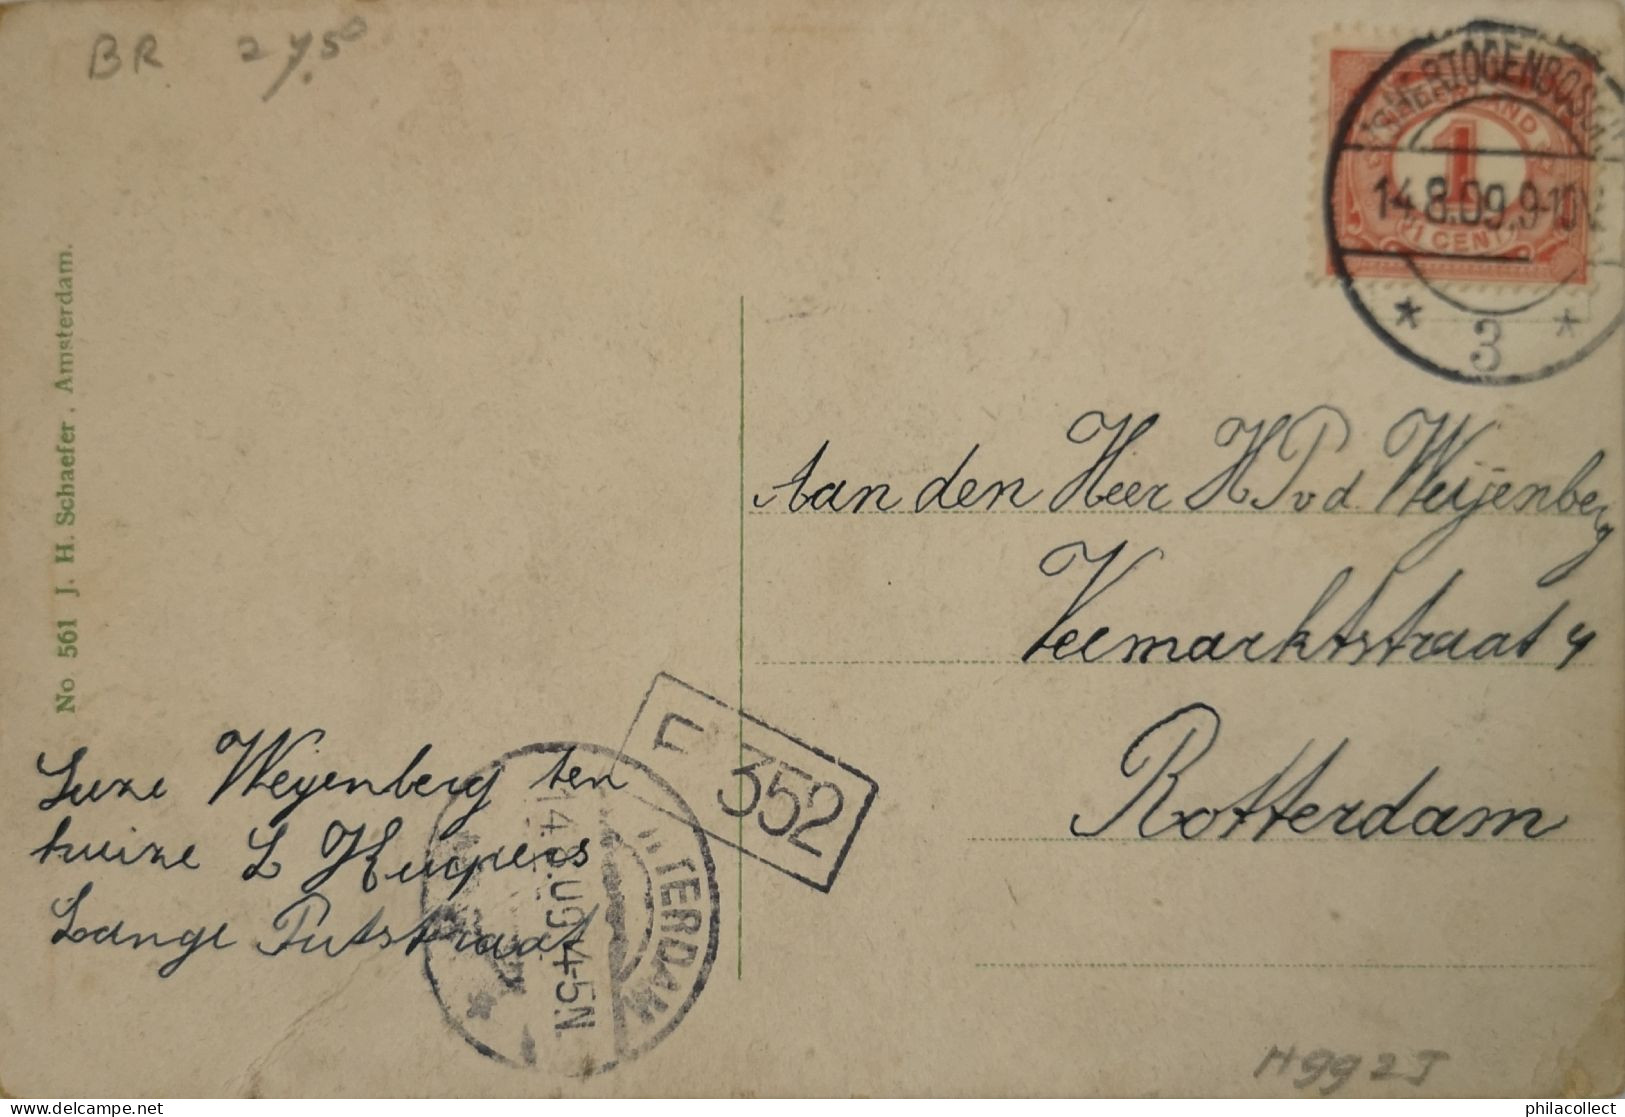 BR 27.50
'S HERTOGENBOSCH
NEDERLAND
1
14.8.09.9-10V
1 CENT
* 3 *
No 561 J. H. Schaefer, Amsterdam.
Aan den Heer H P v d Weijenberg
Veemarktstraat 4
Rotterdam
352
Suze Weijenberg ten
huize L Kuypers
Lange Putstraat
TTERDAM
14.8.09.4-5N
H9923
delcampe.net
philacollect